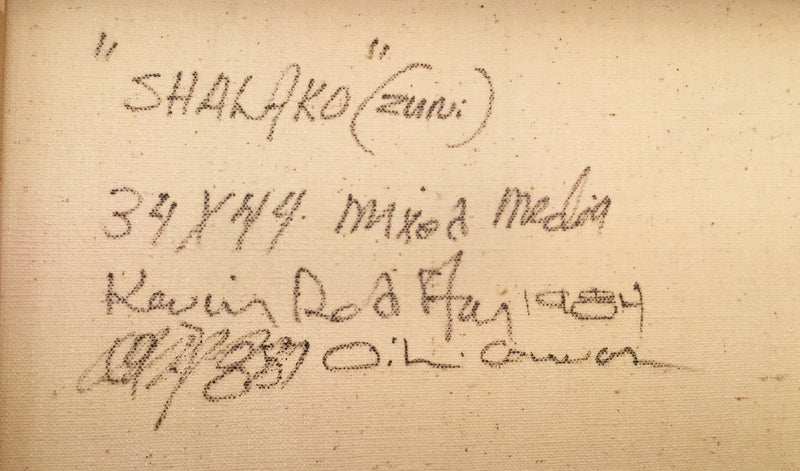 "SHALAKO" (ZUNI)
34 X 44 mixed media
Kevin Red Star 1984
Oil. canvas